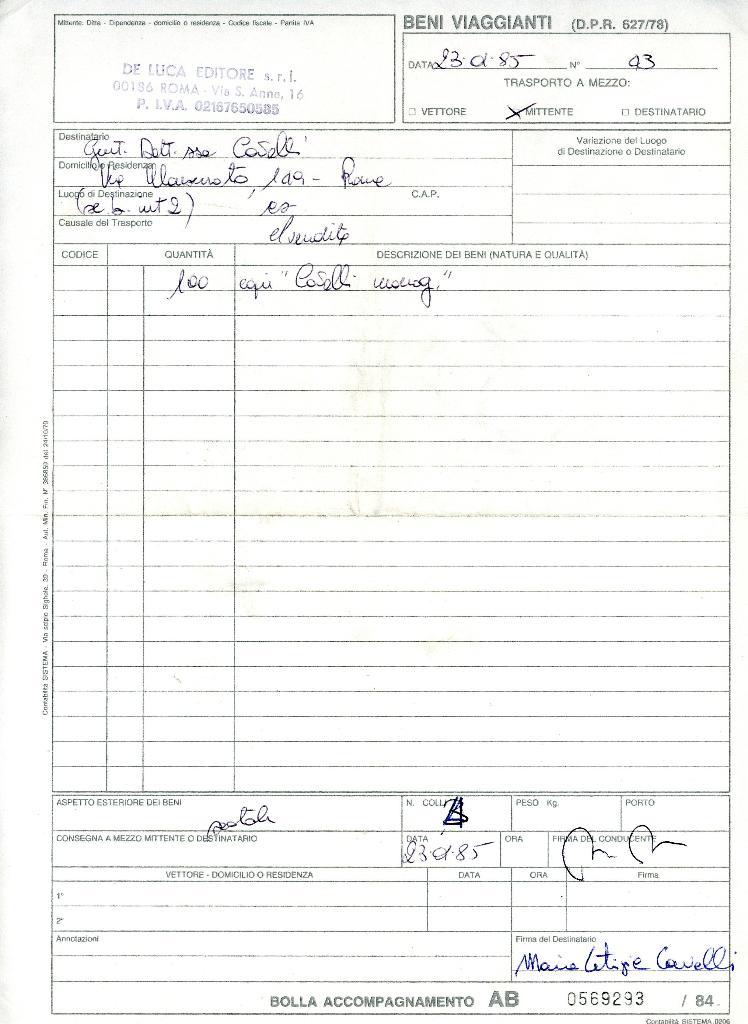 Mittente: Ditta - Dipendenza - domicilio o residenza - Codice fiscale - Partita IVA
BENI VIAGGIANTI (D.P.R. 627/78)
DE LUCA EDITORE s.r.l.
00186 ROMA - Via S. Anna, 16
P. I.V.A. 02167650585
DATA 23·01·85 N° 03
TRASPORTO A MEZZO:
VETTORE MITTENTE DESTINATARIO
Destinatario
Gent. Dott.ssa Caselli
Domicilio o Residenza
Via 109 - Roma
Luogo di Destinazione
C.A.P.
Causale del Trasporto
Variazione del Luogo
di Destinazione o Destinatario
CODICE QUANTITÀ DESCRIZIONE DEI BENI (NATURA E QUALITÀ)
100 copie "Caselli monog."
Contabilità SISTEMA - Via scipio Sighele, 30 - Roma - Aut. Min. Fin. N° 366850 del 24/10/79
ASPETTO ESTERIORE DEI BENI
scatole
N. COLLI 4
PESO Kg.
PORTO
CONSEGNA A MEZZO MITTENTE O DESTINATARIO
DATA
23·01·85
ORA
FIRMA DEL CONDUCENTE
VETTORE - DOMICILIO O RESIDENZA DATA ORA Firma
1°
2°
Annotazioni
Firma del Destinatario
Maria Letizia Caselli
BOLLA ACCOMPAGNAMENTO AB 0569293 / 84
Contabilità SISTEMA 0206